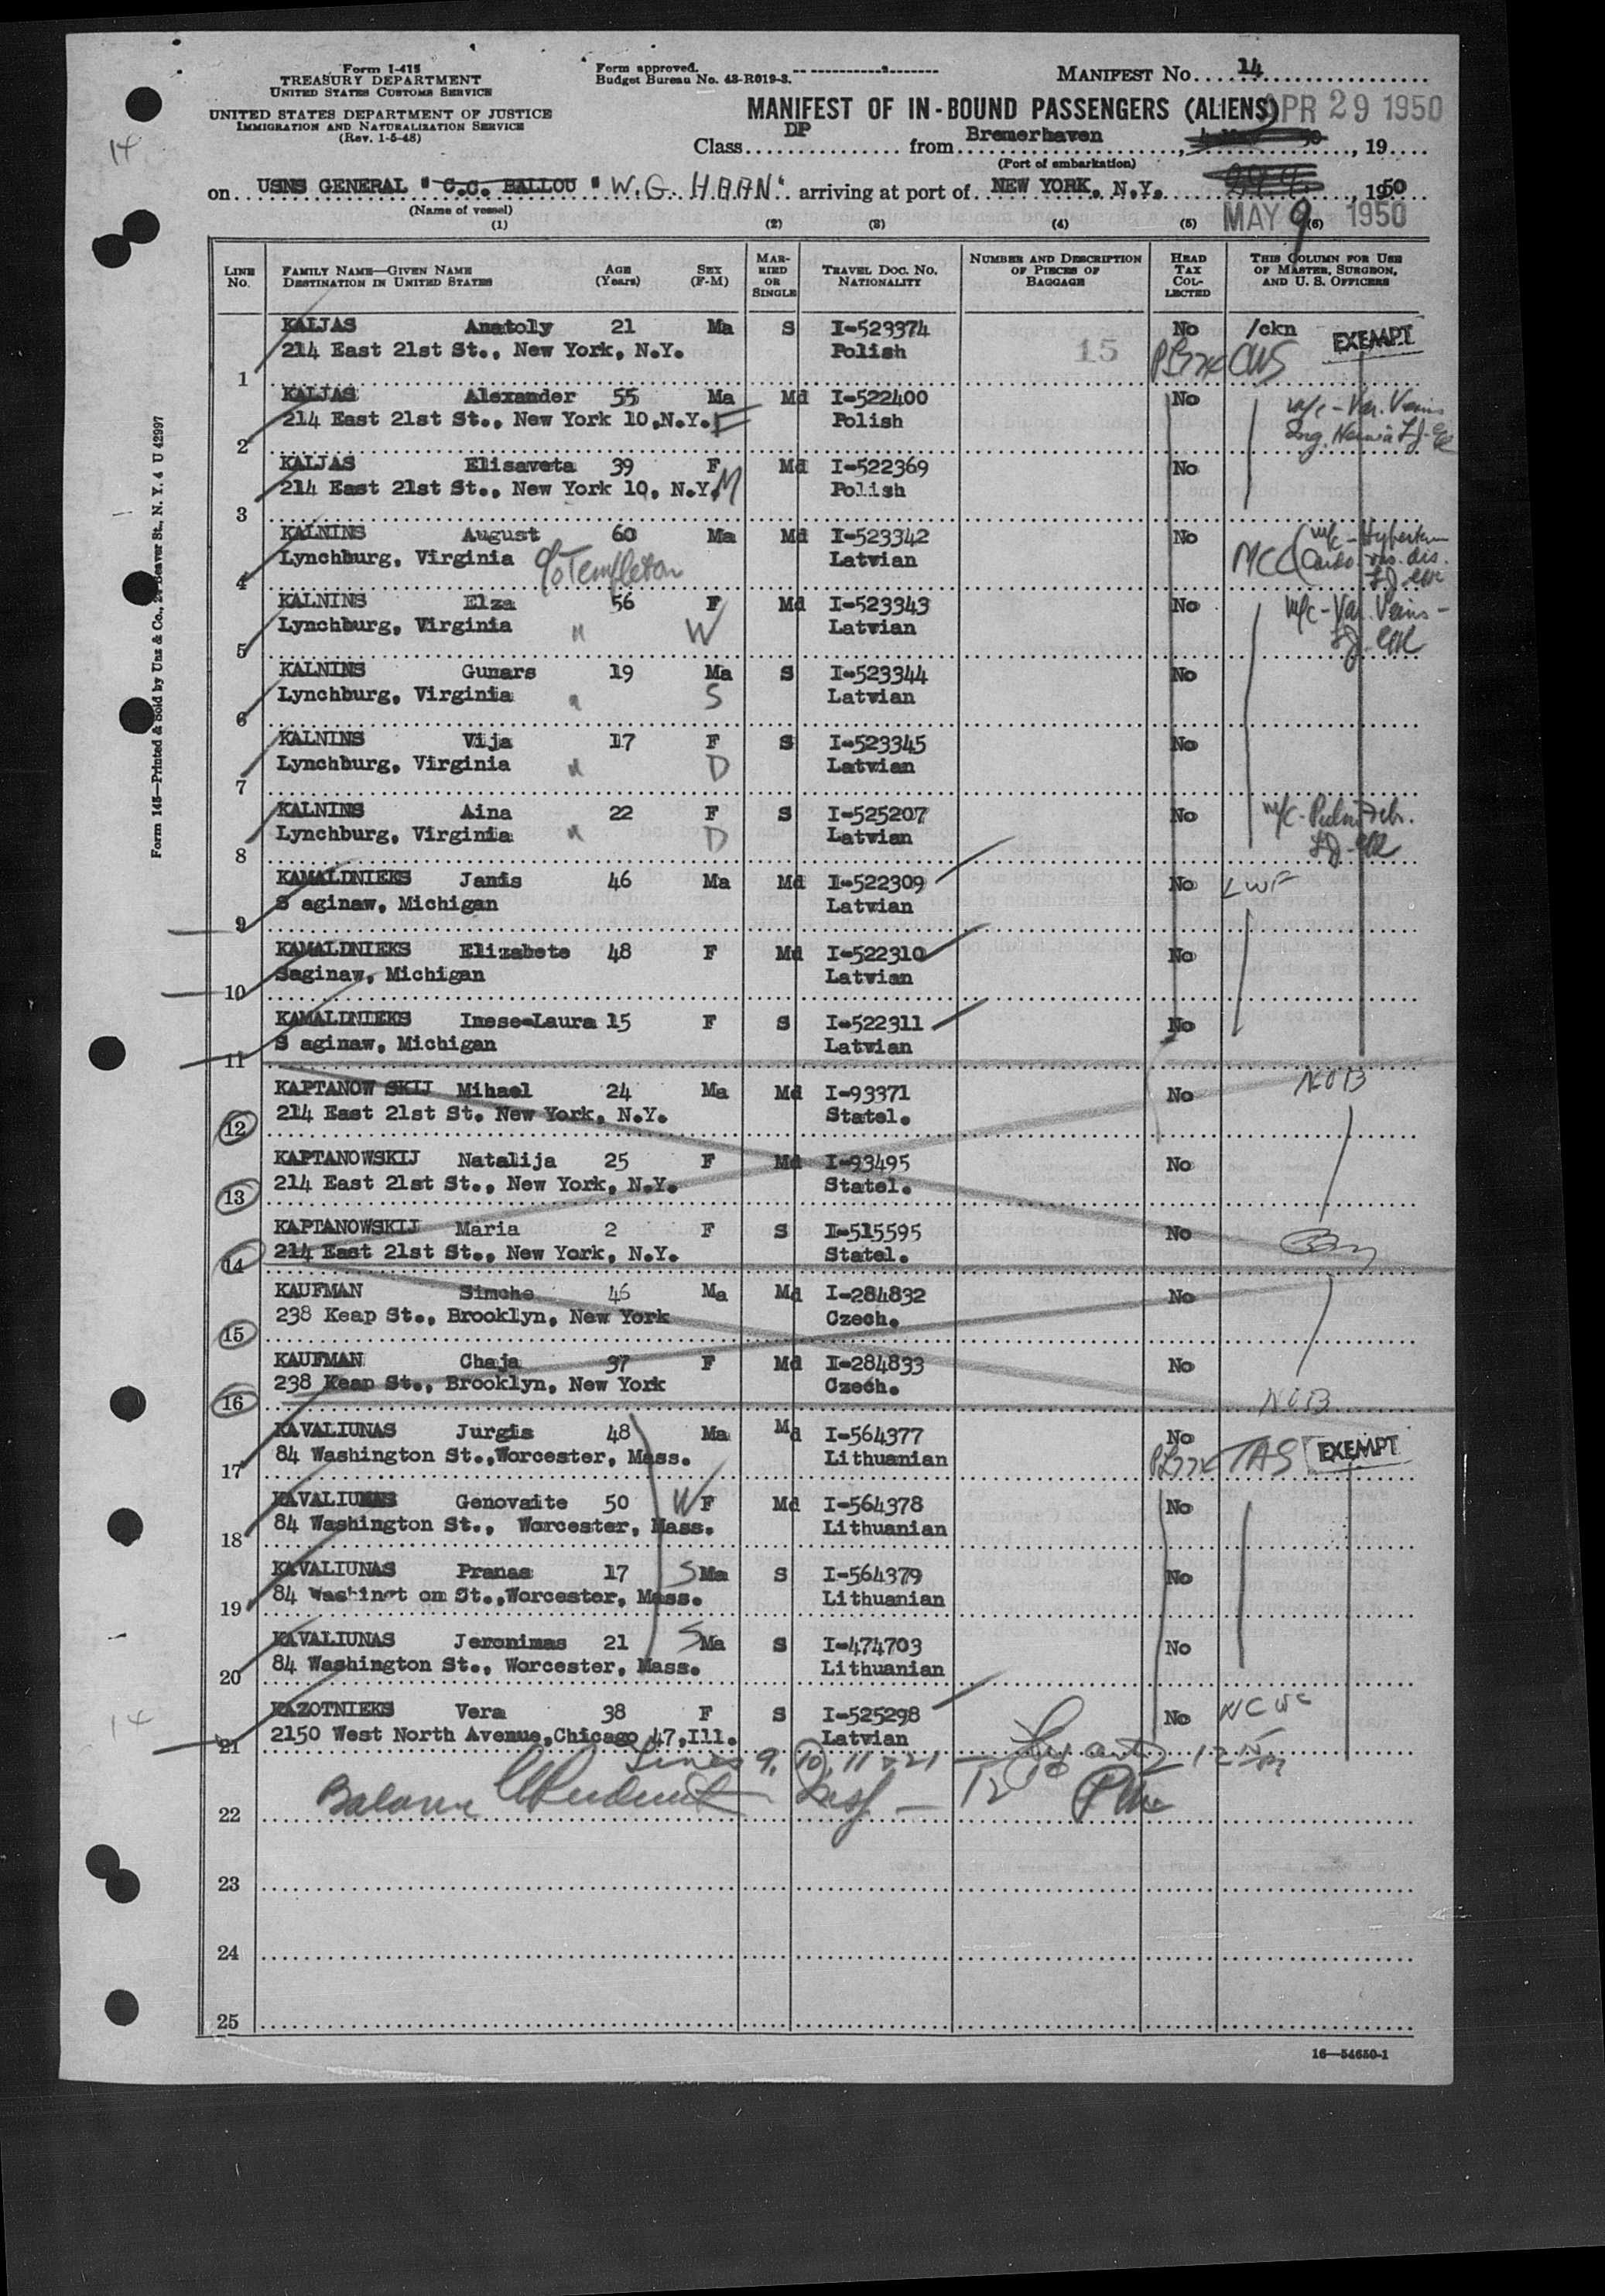 Form I-415
TREASURY DEPARTMENT
UNITED STATES CUSTOMS SERVICE
UNITED STATES DEPARTMENT OF JUSTICE
IMMIGRATION AND NATURALIZATION SERVICE
(Rev. 1-5-48)
Form approved.
Budget Bureau No. 43-R019-3.
MANIFEST NO. 14
MANIFEST OF IN-BOUND PASSENGERS (ALIENS) APR 29 1950
14
Class DP from Bremerhaven, , 19
(Port of embarkation)
on USNS GENERAL " C.C. BALLOU " W.G. HAAN" arriving at port of NEW YORK, N.Y. , 1950
(Name of vessel)
MAY 9 1950
(1) (2) (3) (4) (5) (6)
LINE NO. FAMILY NAME—GIVEN NAME DESTINATION IN UNITED STATES AGE (Years) SEX (F-M) MARRIED OR SINGLE TRAVEL DOC. NO. NATIONALITY NUMBER AND DESCRIPTION OF PIECES OF BAGGAGE HEAD TAX COLLECTED THIS COLUMN FOR USE OF MASTER, SURGEON, AND U. S. OFFICERS
KALJAS Anatoly 21 Ma S I-523374 No /ckn EXEMPT
1 214 East 21st St., New York, N.Y. Polish 15 CWS
KALJAS Alexander 55 Ma Md I-522400 No m/c - Var. Veins
2 214 East 21st St., New York 10,N.Y. F Polish Ing. Hernia
KALJAS Elisaveta 39 F Md I-522369 No
3 214 East 21st St., New York 10, N.Y. M Polish
KALNINS August 60 Ma Md I-523342 No m/c - Hyperten
4 Lynchburg, Virginia c/o Templeton Latvian MCC Cardio vas. dis.
KALNINS Elza 56 F Md I-523343 No m/c - Var. Veins -
5 Lynchburg, Virginia " W Latvian
KALNINS Gunars 19 Ma S I-523344 No
6 Lynchburg, Virginia " S Latvian
KALNINS Vija 17 F S I-523345 No
7 Lynchburg, Virginia " D Latvian
KALNINS Aina 22 F S I-525207 No m/c - Pulm. Febr.
8 Lynchburg, Virginia " D Latvian
KAMALDNIEKS Janis 46 Ma Md I-522309 No LWF
9 S aginaw, Michigan Latvian
KAMALDNIEKS Elizabete 48 F Md I-522310 No
10 Saginaw, Michigan Latvian
KAMALDNIEKS Inese-Laura 15 F S I-522311 No
11 S aginaw, Michigan Latvian
KAPTANOW SKIJ Mihael 24 Ma Md I-93371 No NOB
12 214 East 21st St. New York, N.Y. Statel.
KAPTANOWSKIJ Natalija 25 F Md I-93495 No
13 214 East 21st St., New York, N.Y. Statel.
KAPTANOWSKIJ Maria 2 F S I-515595 No
14 214 East 21st St., New York, N.Y. Statel.
KAUFMAN Simche 46 Ma Md I-284832 No
15 238 Keap St., Brooklyn, New York Czech.
KAUFMAN Chaja 37 F Md I-284833 No
16 238 Keap St., Brooklyn, New York Czech. NOB
KAVALIUNAS Jurgis 48 Ma Md I-564377 No
17 84 Washington St.,Worcester, Mass. Lithuanian TAS EXEMPT
KAVALIUNAS Genovaite 50 W F Md I-564378 No
18 84 Washington St., Worcester, Mass. Lithuanian
KAVALIUNAS Pranas 17 S Ma S I-564379 No
19 84 Washingt on St.,Worcester, Mass. Lithuanian
KAVALIUNAS Jeronimas 21 S Ma S I-474703 No
20 84 Washington St., Worcester, Mass. Lithuanian
KAZOTNIEKS Vera 38 F S I-525298 No NCWC
21 2150 West North Avenue,Chicago 47,Ill. Latvian
Lines 9, 10, 11 & 21
22 Balance Insp - 12
23
24
25
16—54650-1
14
Form 145—Printed & Sold by Unz & Co., 24 Beaver St., N. Y. 4 U 42997